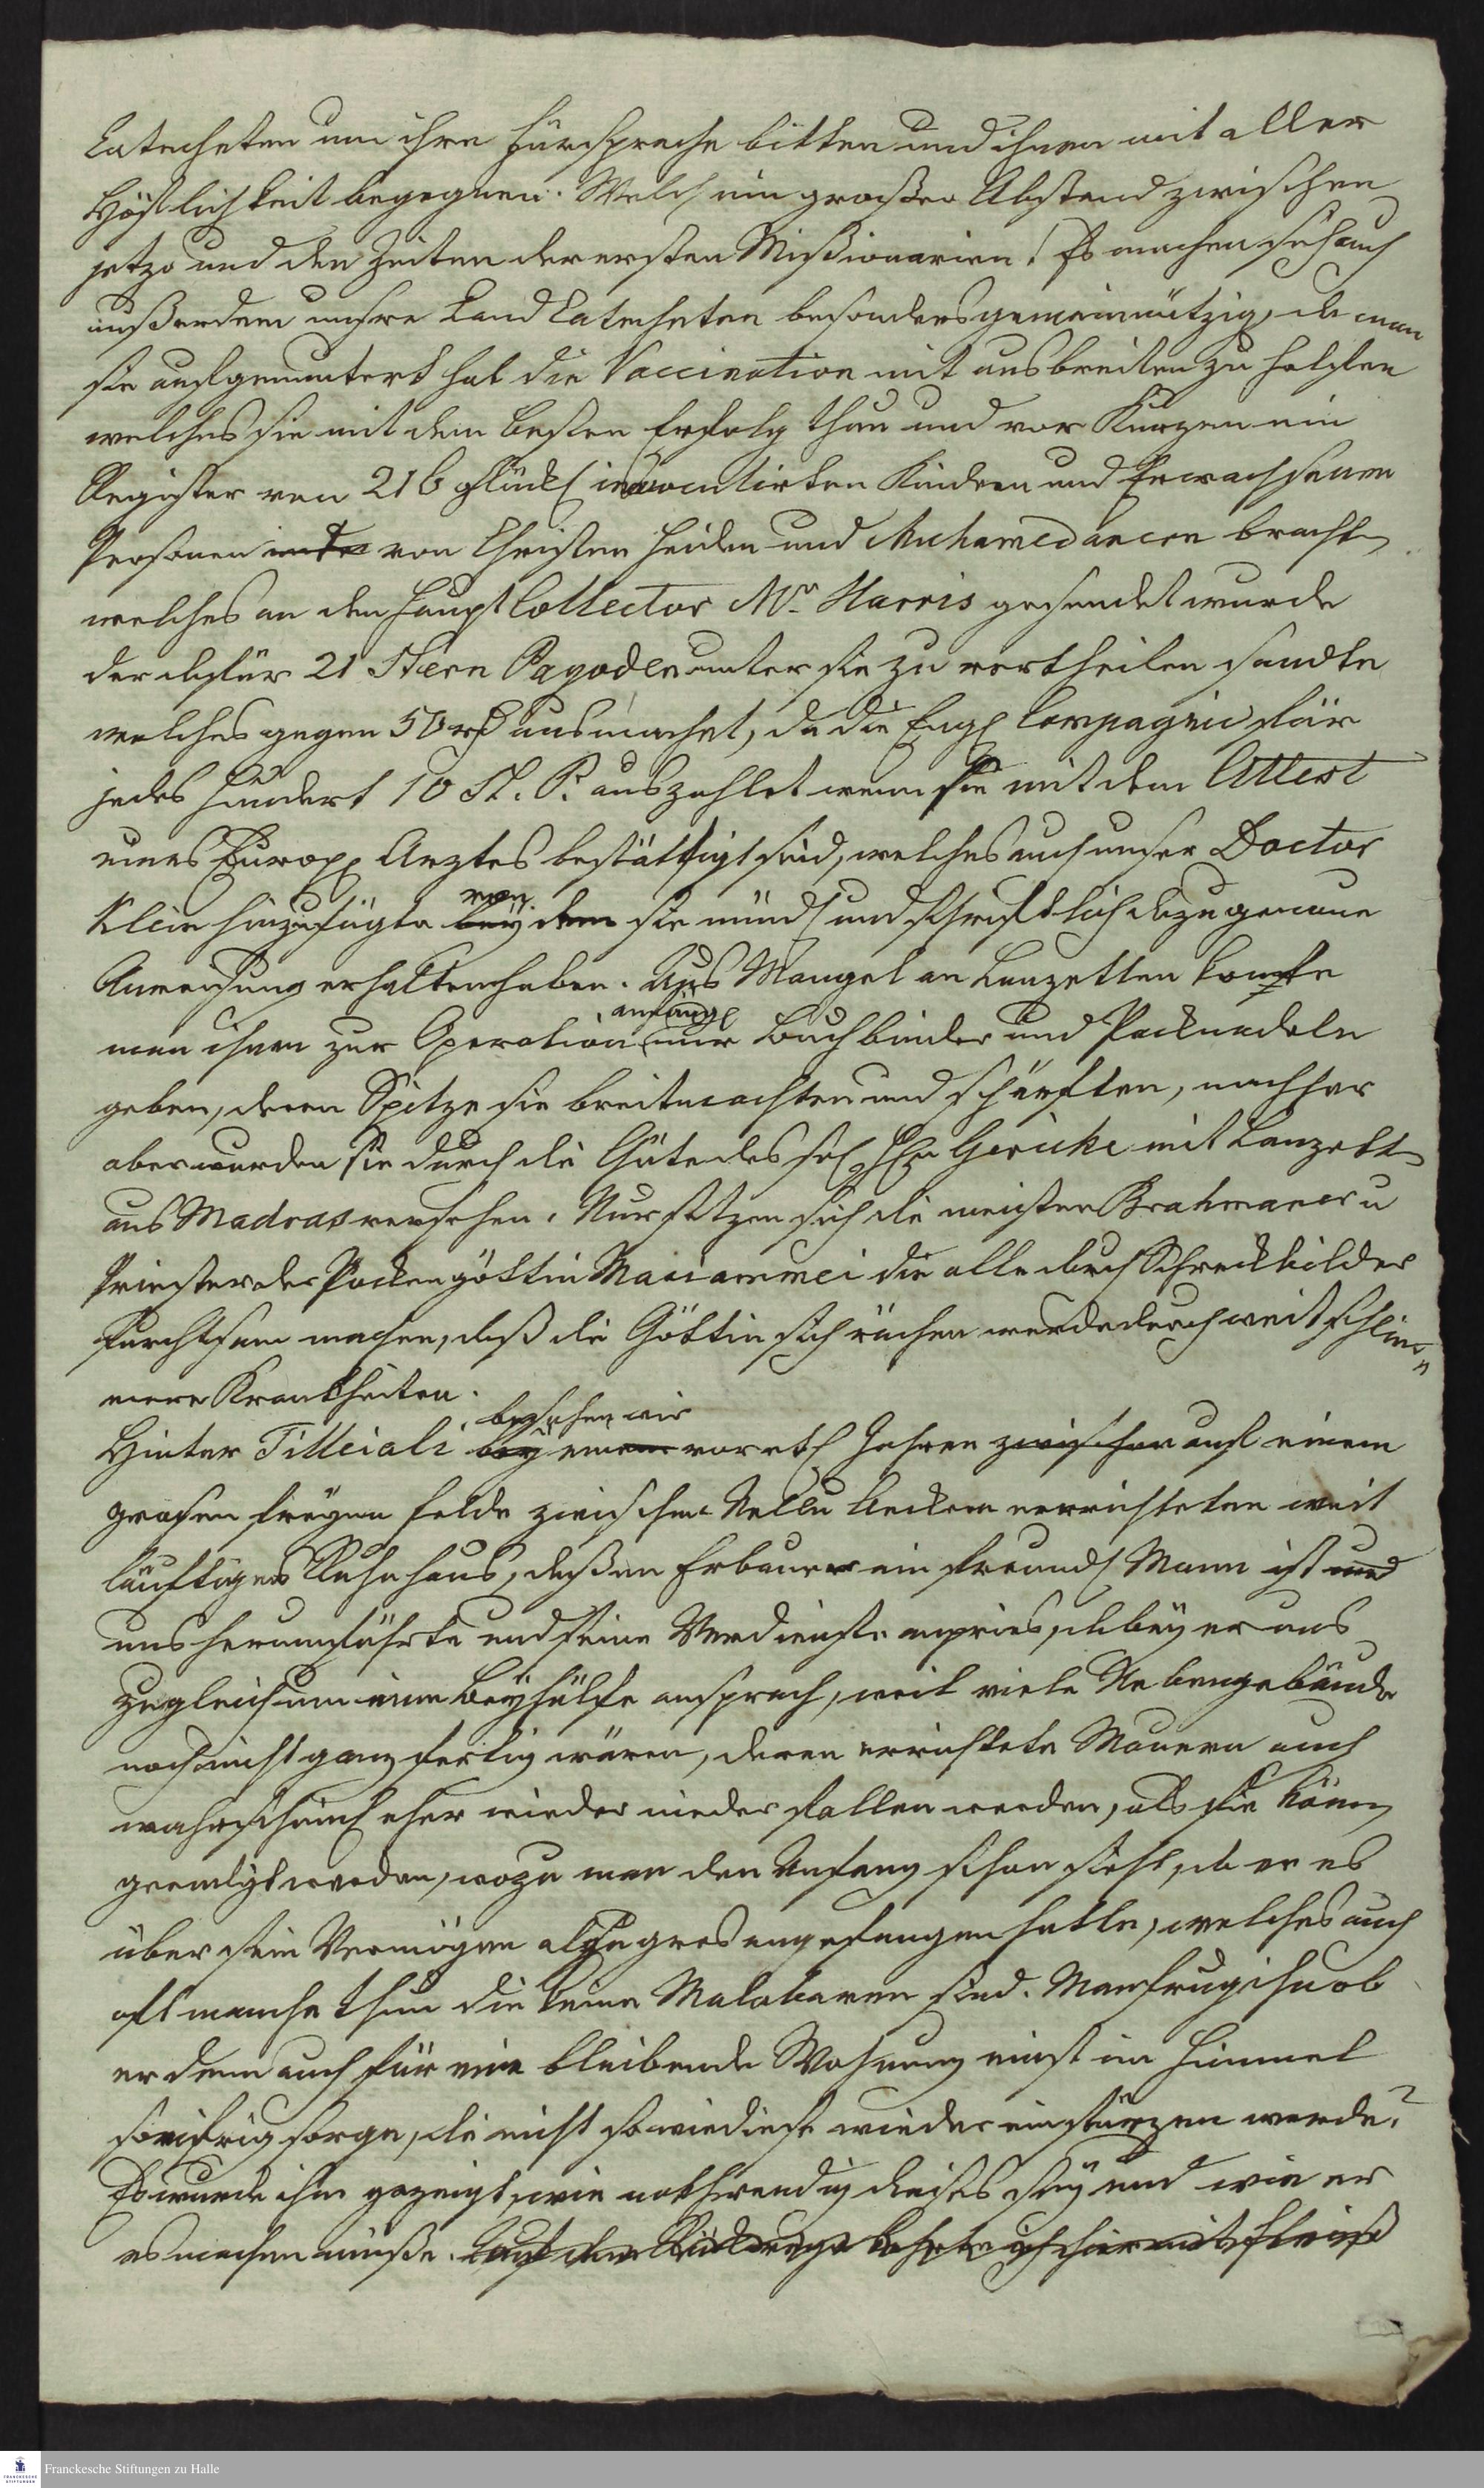 Catecheten um ihre Fürsprache bitten und ihnen mit aller
Höflichkeit begegnen. Welch ein großer Abstand zwischen
jetzo und den Zeiten der ersten Mißionarien! Es machen sich auch
außerdem unsre Land Catecheten besonders gemeinnützig, da man
sie aufgemuntert hat die Vaccination mit ausbreiten zu helfen
welches sie mit dem besten Erfolg thun und vor Kurzem ein
Register von 216 glückl inoculirten Kindern und Erwachsenen
Personen von Christen Heiden und Muhamedanern brachten
welches an den Haupt Collector Mr. Harris gesendet wurde
der dafür 21 Stern Pagoden unter sie zu vertheilen sandte
welches gegen 50 rf ausmachet, da die Engl Compagnie für
jedes Hundert 10 St. P. auszahlet wenn sie mit dem Attest
eines Europ Arztes bestättigt sind, welches auch unser Doctor
Klein hinzufügte von bey dem sie mündl und schriftlich dazu genaue
Anweisung erhalten haben. Aus Mangel an Lanzetten konte
man ihnen zur Operation anfängl nur Buchbinder und Packnadeln
geben, deren Spitze sie breit machten und schärften, nachher
aber wurden sie durch die Güte des sel Hn Gericke mit Lanzett
aus Madras versehen. Nur setzen sich die meisten Brahmaner u
Priester der Pockengöttin Mariammei die alle durch Schreckbilder
furchtsam machen, daß die Göttin sich rächen werde durch weit schlim¬
mere Krankheiten.
Hinter Tilleiali bey besahen wir einem vor etl Jahren zwischen auf einem
grosen freyen Felde zwischen Nellu Aeckern errichteten weit
läuftiges Ruhehaus, deßen Erbauer ein freundl Mann ist und
uns herumführte und seine Verdienste anpries, dabey er uns
zugleich um eine Beyhülfe ansprach, weil viele Nebengebäude
noch nicht ganz fertig wären, deren errichtete Mauern auch
wahrscheinl eher wieder nieder fallen werden, als sie können
geendigt werden, wozu man den Anfang schon sieht, da er es
über sein Vermögen allzugros angefangen hatte, welches auch
oft manche thun die keine Malabaren sind. Man frug ihn ob
er denn auch für eine bleibende Wohnung einst im Himmel
so eifrig sorge, die nicht so wie diese wieder einstürzen werde?
Es wurde ihm gezeigt, wie nothwendig dieses sey und wie er
es machen müße. Auf dem Rückwege kehrte ich hier mit Fleiß
Franckesche Stiftungen zu Halle